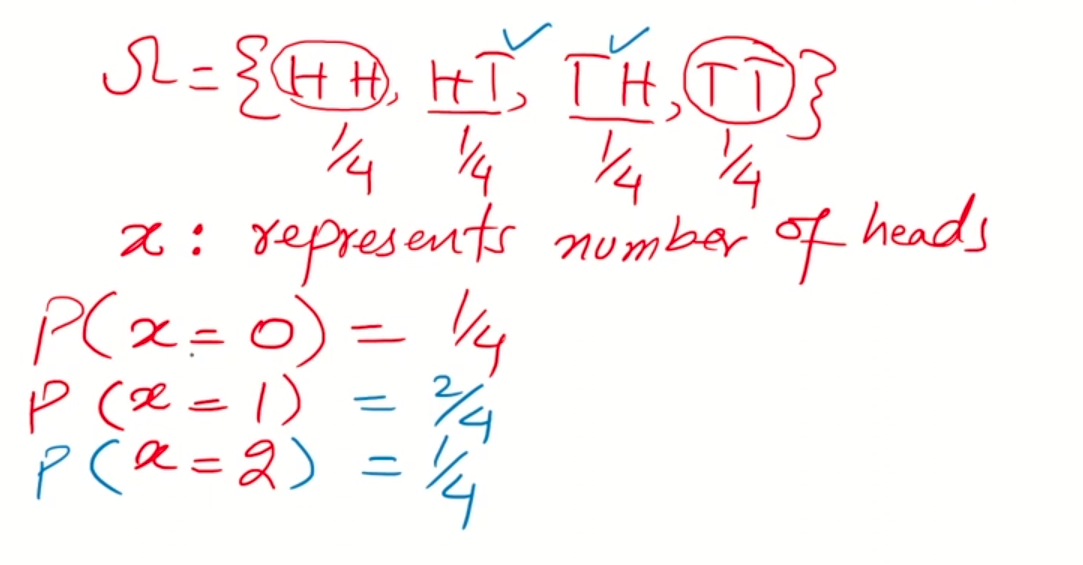 Ω = {HH, HT, TH, TT}
1/4 1/4 1/4 1/4
x : represents number of heads
P(x = 0) = 1/4
P(x = 1) = 2/4
P(x = 2) = 1/4